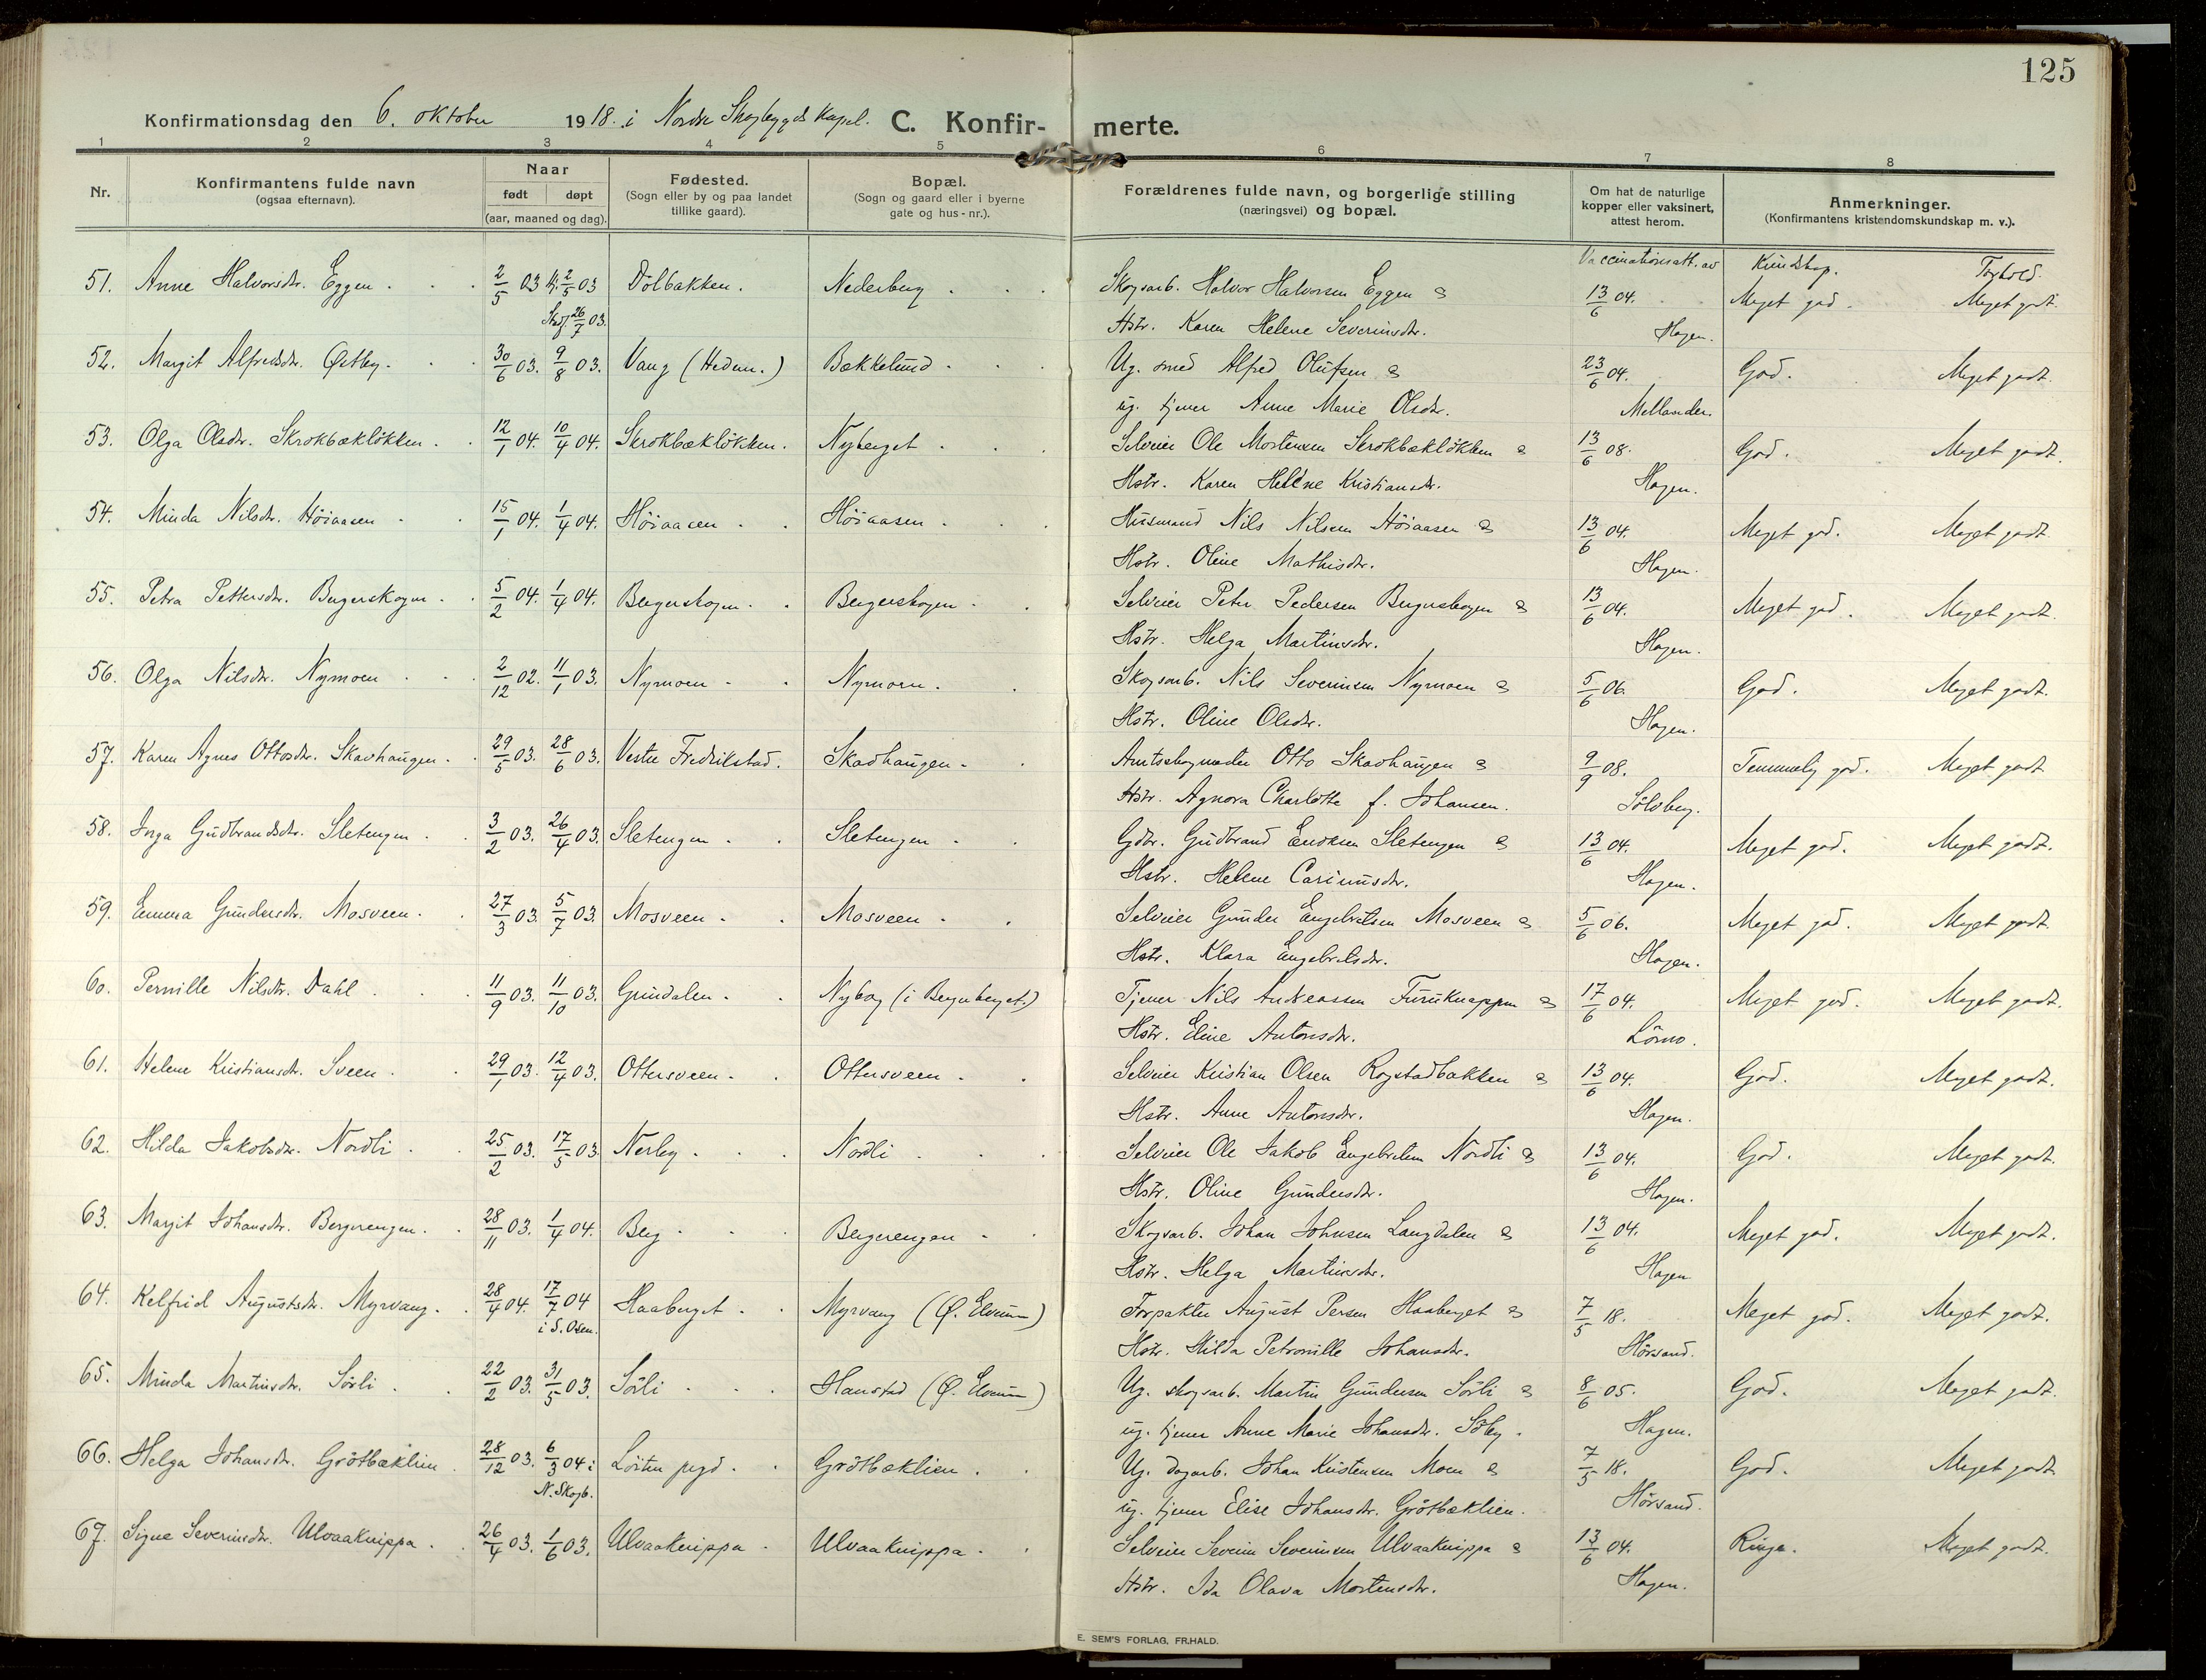 125
Konfirmationsdag den 6. oktober 1918. i Nordre Skogbygds Kapel. C. Konfir- merte.
1 2 3 4 5 6 7 8
Nr. Konfirmantens fulde navn (ogsaa efternavn). Naar født døpt (aar, maaned og dag). Fødested. (Sogn eller by og paa landet tillike gaard). Bopæl. (Sogn og gaard eller i byerne gate og hus-nr.). Forældrenes fulde navn, og borgerlige stilling (næringsvei) og bopæl. Om hat de naturlige kopper eller vaksinert, attest herom. Anmerkninger. (Konfirmantens kristendomskundskap m. v.).
Vaccinationsatt. av Kundskap. Forhold.
51. Anne Halvorsdtr. Eggen. 2/5 03 Hj. 2/5 03 Dölbakken. Nederberg Skogsarb. Halvor Halvorsen Eggen & 13/6 04. Meget god. Meget godt.
Stadf. 26/7 03. Hstr. Karen Helene Severinsdtr. Hagen.
52. Margit Alfredsdtr. Østby. 30/6 03. 9/8 03. Vang (Hedem.) Bækkelund. Ug. smed Alfred Olufsen & 23/6 04. God. Meget godt.
ug. tjener Anne Marie Olsdtr. Mellander.
53. Olga Olsdtr. Skrokbæklökken. 12/1 04. 10/4 04. Skrokbæklökken. Nyberget. Selveier Ole Mortensen Skrokbæklökken & 13/6 08. God. Meget godt.
Hstr. Karen Helene Kristiansdtr. Hagen.
54. Minda Nilsdtr. Höiaasen 15/1 04. 1/4 04. Höiaasen. Höiaasen. Husmand Nils Nilsen Höiaasen & 13/6 04. Meget god. Meget godt.
Hstr. Oline Mathisdtr. Hagen.
55. Petra Pettersdtr. Bergerskogen. 5/2 04. 1/4 04. Bergerskogen. Bergerskogen. Selveier Peter Pedersen Bergerskogen & 13/6 04. Meget god. Meget godt.
Hstr. Helga Martinsdtr. Hagen.
56. Olga Nilsdtr. Nymoen 2/12 02. 11/1 03. Nymoen. Nymoen. Skogsarb. Nils Severinsen Nymoen & 5/6 06. God. Meget godt.
Hstr. Oline Olsdtr. Hagen.
57. Karen Agnes Ottosdtr. Skavhaugen. 29/5 03. 28/6 03. Vestre Fredrikstad. Skavhaugen. Amtsskogmester Otto Skavhaugen & 9/9 08. Temmelig god. Meget godt
Hstr. Agnora Charlotte f. Johansen. Sölvberg.
58. Inga Gudbrandsdtr. Sletengen. 3/2 03. 26/4 03. Sletengen. Sletengen. Gdbr. Gudbrand Eriksen Sletengen & 13/6 04. Meget god. Meget godt.
Hstr. Helene Carinusdtr. Hagen.
59. Emma Gundersdtr. Mosveen. 27/3 03. 5/7 03. Mosveen. Mosveen. Selveier Gunder Engebretsen Mosveen & 5/6 06. Meget god. Meget godt.
Hstr. Klara Engebretsdtr. Hagen.
60. Pernille Nilsdtr. Dahl 11/9 03. 11/10 03. Grindalen. Nyborg (i Bergeberget.) Tjener Nils Andreassen Furuknappen & 17/6 04. Meget god. Meget godt.
Hstr. Eline Antonsdtr. Lömo.
61. Helene Kristiansdtr. Sveen. 29/1 03. 12/4 03. Ottersveen. Ottersveen. Selveier Kristian Olsen Rogstadbakken & 13/6 04. God. Meget godt.
Hstr. Anne Antonsdtr. Hagen.
62. Hilda Jakobsdtr. Nordli 25/2 03. 17/5 03 Nerby. Nordli Selveier Ole Jakob Engebretsen Nordli & 13/6 04. God. Meget godt.
Hstr. Oline Gundersdtr. Hagen.
63. Margit Johansdtr. Bergerengen. 28/11 03. 1/4 04. Berg Bergerengen Skogsarb. Johan Johnsen Langdalen & 13/6 04. Meget god. Meget godt.
Hstr. Helga Martinsdtr. Hagen
64. Kelfrid Augustsdtr. Myrvang. 28/4 04. 17/7 04 Haaberget. Myrvang (Ø. Elverum) Forpakter August Persen Haaberget & 7/5 18. Meget god. Meget godt.
i S. Osen. Hstr. Hilda Petronille Johansdtr. Hörsand.
65. Minda Martinsdtr. Sörli. 22/2 03. 31/5 03. Sörli Hanstad (Ø. Elverum) Ug. skogsarb. Martin Gundersen Sörli & 8/6 05. God. Meget godt.
ug. tjener Anne Marie Johansdtr. Söby. Hagen.
66. Helga Johansdtr. Grötbæklien 28/12 03. 6/3 04 i Löiten pgd. Grötbæklien. Ug. dagarb. Johan Kristensen Moen & 7/5 18. God. Meget godt.
N. Skogb. ug. tjener Elise Johansdtr. Grötbæklien. Hörsand.
67. Signe Severinsdtr. Ulvaaknippa. 26/4 03. 1/6 03. Ulvaaknippa. Ulvaaknippa. Selveier Severin Severinsen Ulvaaknippa & 13/6 04. Ringe. Meget godt.
Hstr. Ida Olava Mortensdtr. Hagen.
E. SEM'S FORLAG, FR.HALD.